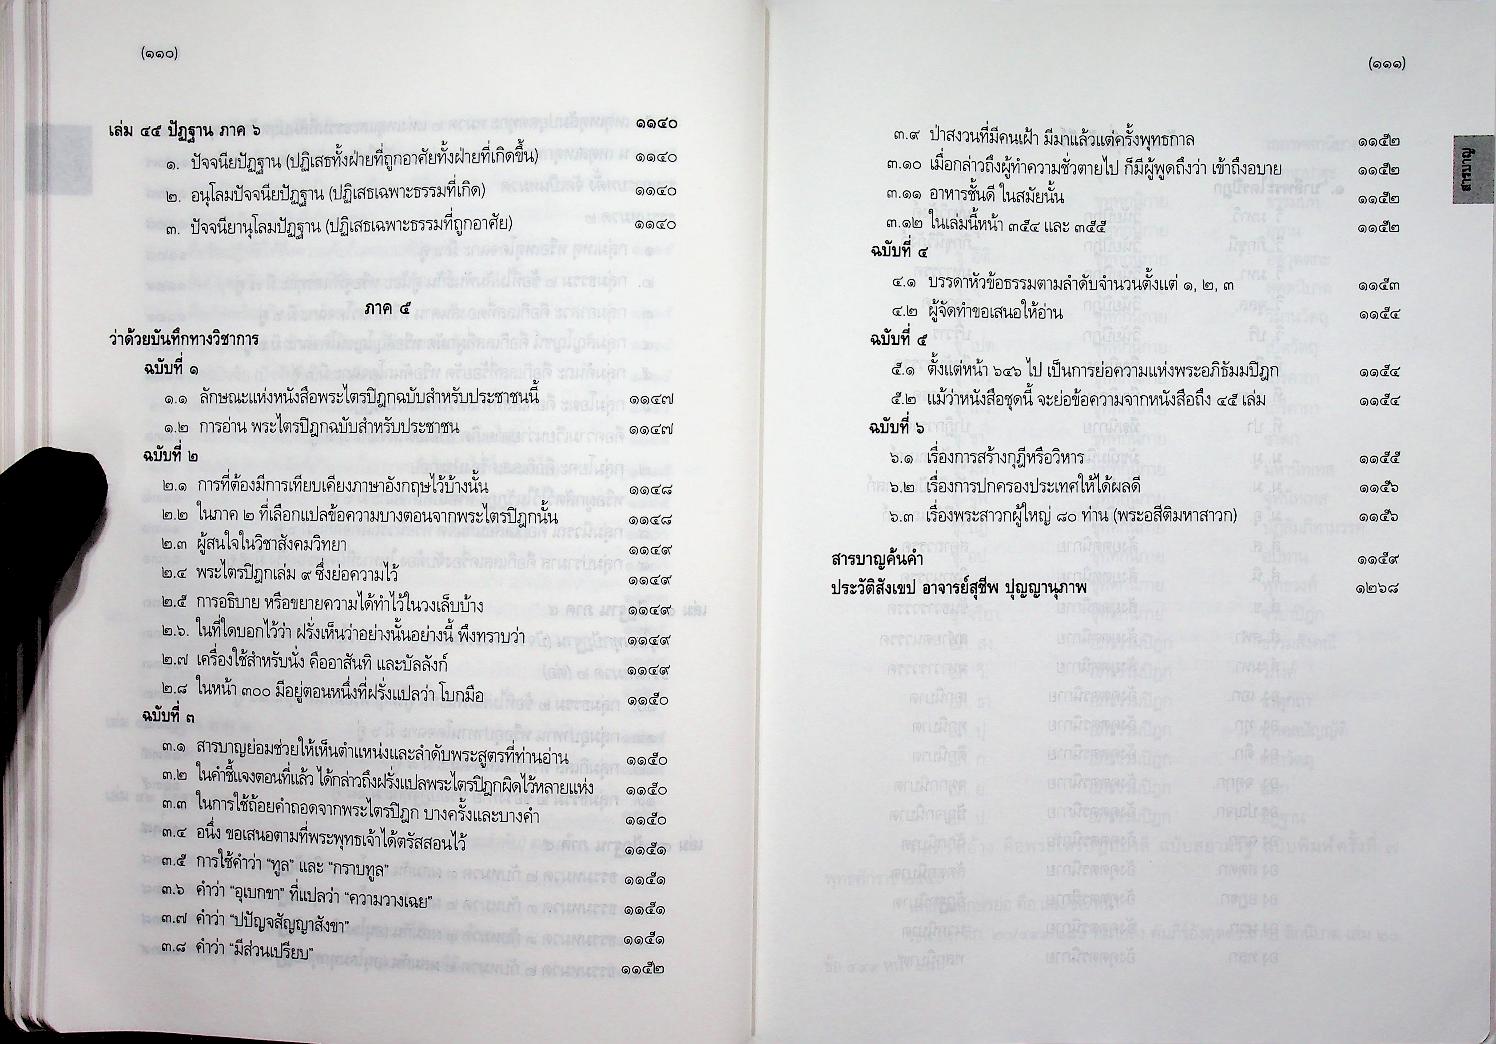 (๑๑๐)
เล่ม ๔๕ ปัฏฐาน ภาค ๖ ๑๑๔๐
๑. ปัจจนียปัฏฐาน (ปฏิเสธทั้งฝ่ายที่ถูกอาศัยทั้งฝ่ายที่เกิดขึ้น) ๑๑๔๐
๒. อนุโลมปัจจนียปัฏฐาน (ปฏิเสธเฉพาะธรรมที่เกิด) ๑๑๔๐
๓. ปัจจนียานุโลมปัฏฐาน (ปฏิเสธเฉพาะธรรมที่ถูกอาศัย) ๑๑๔๐
ภาค ๕
ว่าด้วยบันทึกทางวิชาการ
ฉบับที่ ๑
๑.๑ ลักษณะแห่งหนังสือพระไตรปิฎกฉบับสำหรับประชาชนนี้ ๑๑๔๗
๑.๒ การอ่าน พระไตรปิฎกฉบับสำหรับประชาชน ๑๑๔๗
ฉบับที่ ๒
๒.๑ การที่ต้องมีการเทียบเคียงภาษาอังกฤษไว้บ้างนั้น ๑๑๔๘
๒.๒ ในภาค ๒ ที่เลือกแปลข้อความบางตอนจากพระไตรปิฎกนั้น ๑๑๔๘
๒.๓ ผู้สนใจในวิชาสังคมวิทยา ๑๑๔๙
๒.๔ พระไตรปิฎกเล่ม ๙ ซึ่งย่อความไว้ ๑๑๔๙
๒.๕ การอธิบาย หรือขยายความได้ทำไว้ในวงเล็บบ้าง ๑๑๔๙
๒.๖. ในที่ใดบอกไว้ว่า ฝรั่งเห็นว่าอย่างนั้นอย่างนี้ พึงทราบว่า ๑๑๔๙
๒.๗ เครื่องใช้สำหรับนั่ง คืออาสันทิ และบัลลังก์ ๑๑๔๙
๒.๘ ในหน้า ๓๐๐ มีอยู่ตอนหนึ่งที่ฝรั่งแปลว่า โบกมือ ๑๑๕๐
ฉบับที่ ๓
๓.๑ สารบาญย่อมช่วยให้เห็นตำแหน่งและลำดับพระสูตรที่ท่านอ่าน ๑๑๕๐
๓.๒ ในคำชี้แจงตอนที่แล้ว ได้กล่าวถึงฝรั่งแปลพระไตรปิฎกผิดไว้หลายแห่ง ๑๑๕๐
๓.๓ ในการใช้ถ้อยคำถอดจากพระไตรปิฎก บางครั้งและบางคำ ๑๑๕๐
๓.๔ อนึ่ง ขอเสนอตามที่พระพุทธเจ้าได้ตรัสสอนไว้ ๑๑๕๑
๓.๕ การใช้คำว่า “ทูล” และ “กราบทูล” ๑๑๕๑
๓.๖ คำว่า “อุเบกขา” ที่แปลว่า “ความวางเฉย” ๑๑๕๑
๓.๗ คำว่า “ปปัญจสัญญาสังขา” ๑๑๕๑
๓.๘ คำว่า “มีส่วนเปรียบ” ๑๑๕๒
(๑๑๑)
สารบาญ
๓.๙ ป่าสงวนที่มีคนเฝ้า มีมาแล้วแต่ครั้งพุทธกาล ๑๑๕๒
๓.๑๐ เมื่อกล่าวถึงผู้ทำความชั่วตายไป ก็มีผู้พูดถึงว่า เข้าถึงอบาย ๑๑๕๒
๓.๑๑ อาหารชั้นดี ในสมัยนั้น ๑๑๕๒
๓.๑๒ ในเล่มนี้หน้า ๓๕๔ และ ๓๕๕ ๑๑๕๒
ฉบับที่ ๔
๔.๑ บรรดาหัวข้อธรรมตามลำดับจำนวนตั้งแต่ ๑, ๒, ๓ ๑๑๕๓
๔.๒ ผู้จัดทำขอเสนอให้อ่าน ๑๑๕๔
ฉบับที่ ๕
๕.๑ ตั้งแต่หน้า ๖๔๖ ไป เป็นการย่อความแห่งพระอภิธัมมปิฎก ๑๑๕๔
๕.๒ แม้ว่าหนังสือชุดนี้ จะย่อข้อความจากหนังสือถึง ๔๕ เล่ม ๑๑๕๔
ฉบับที่ ๖
๖.๑ เรื่องการสร้างกุฎีหรือวิหาร ๑๑๕๕
๖.๒ เรื่องการปกครองประเทศให้ได้ผลดี ๑๑๕๖
๖.๓ เรื่องพระสาวกผู้ใหญ่ ๘๐ ท่าน (พระอสีติมหาสาวก) ๑๑๕๖
สารบาญค้นคำ ๑๑๕๙
ประวัติสังเขป อาจารย์สุชีพ ปุญญานุภาพ ๑๒๖๘